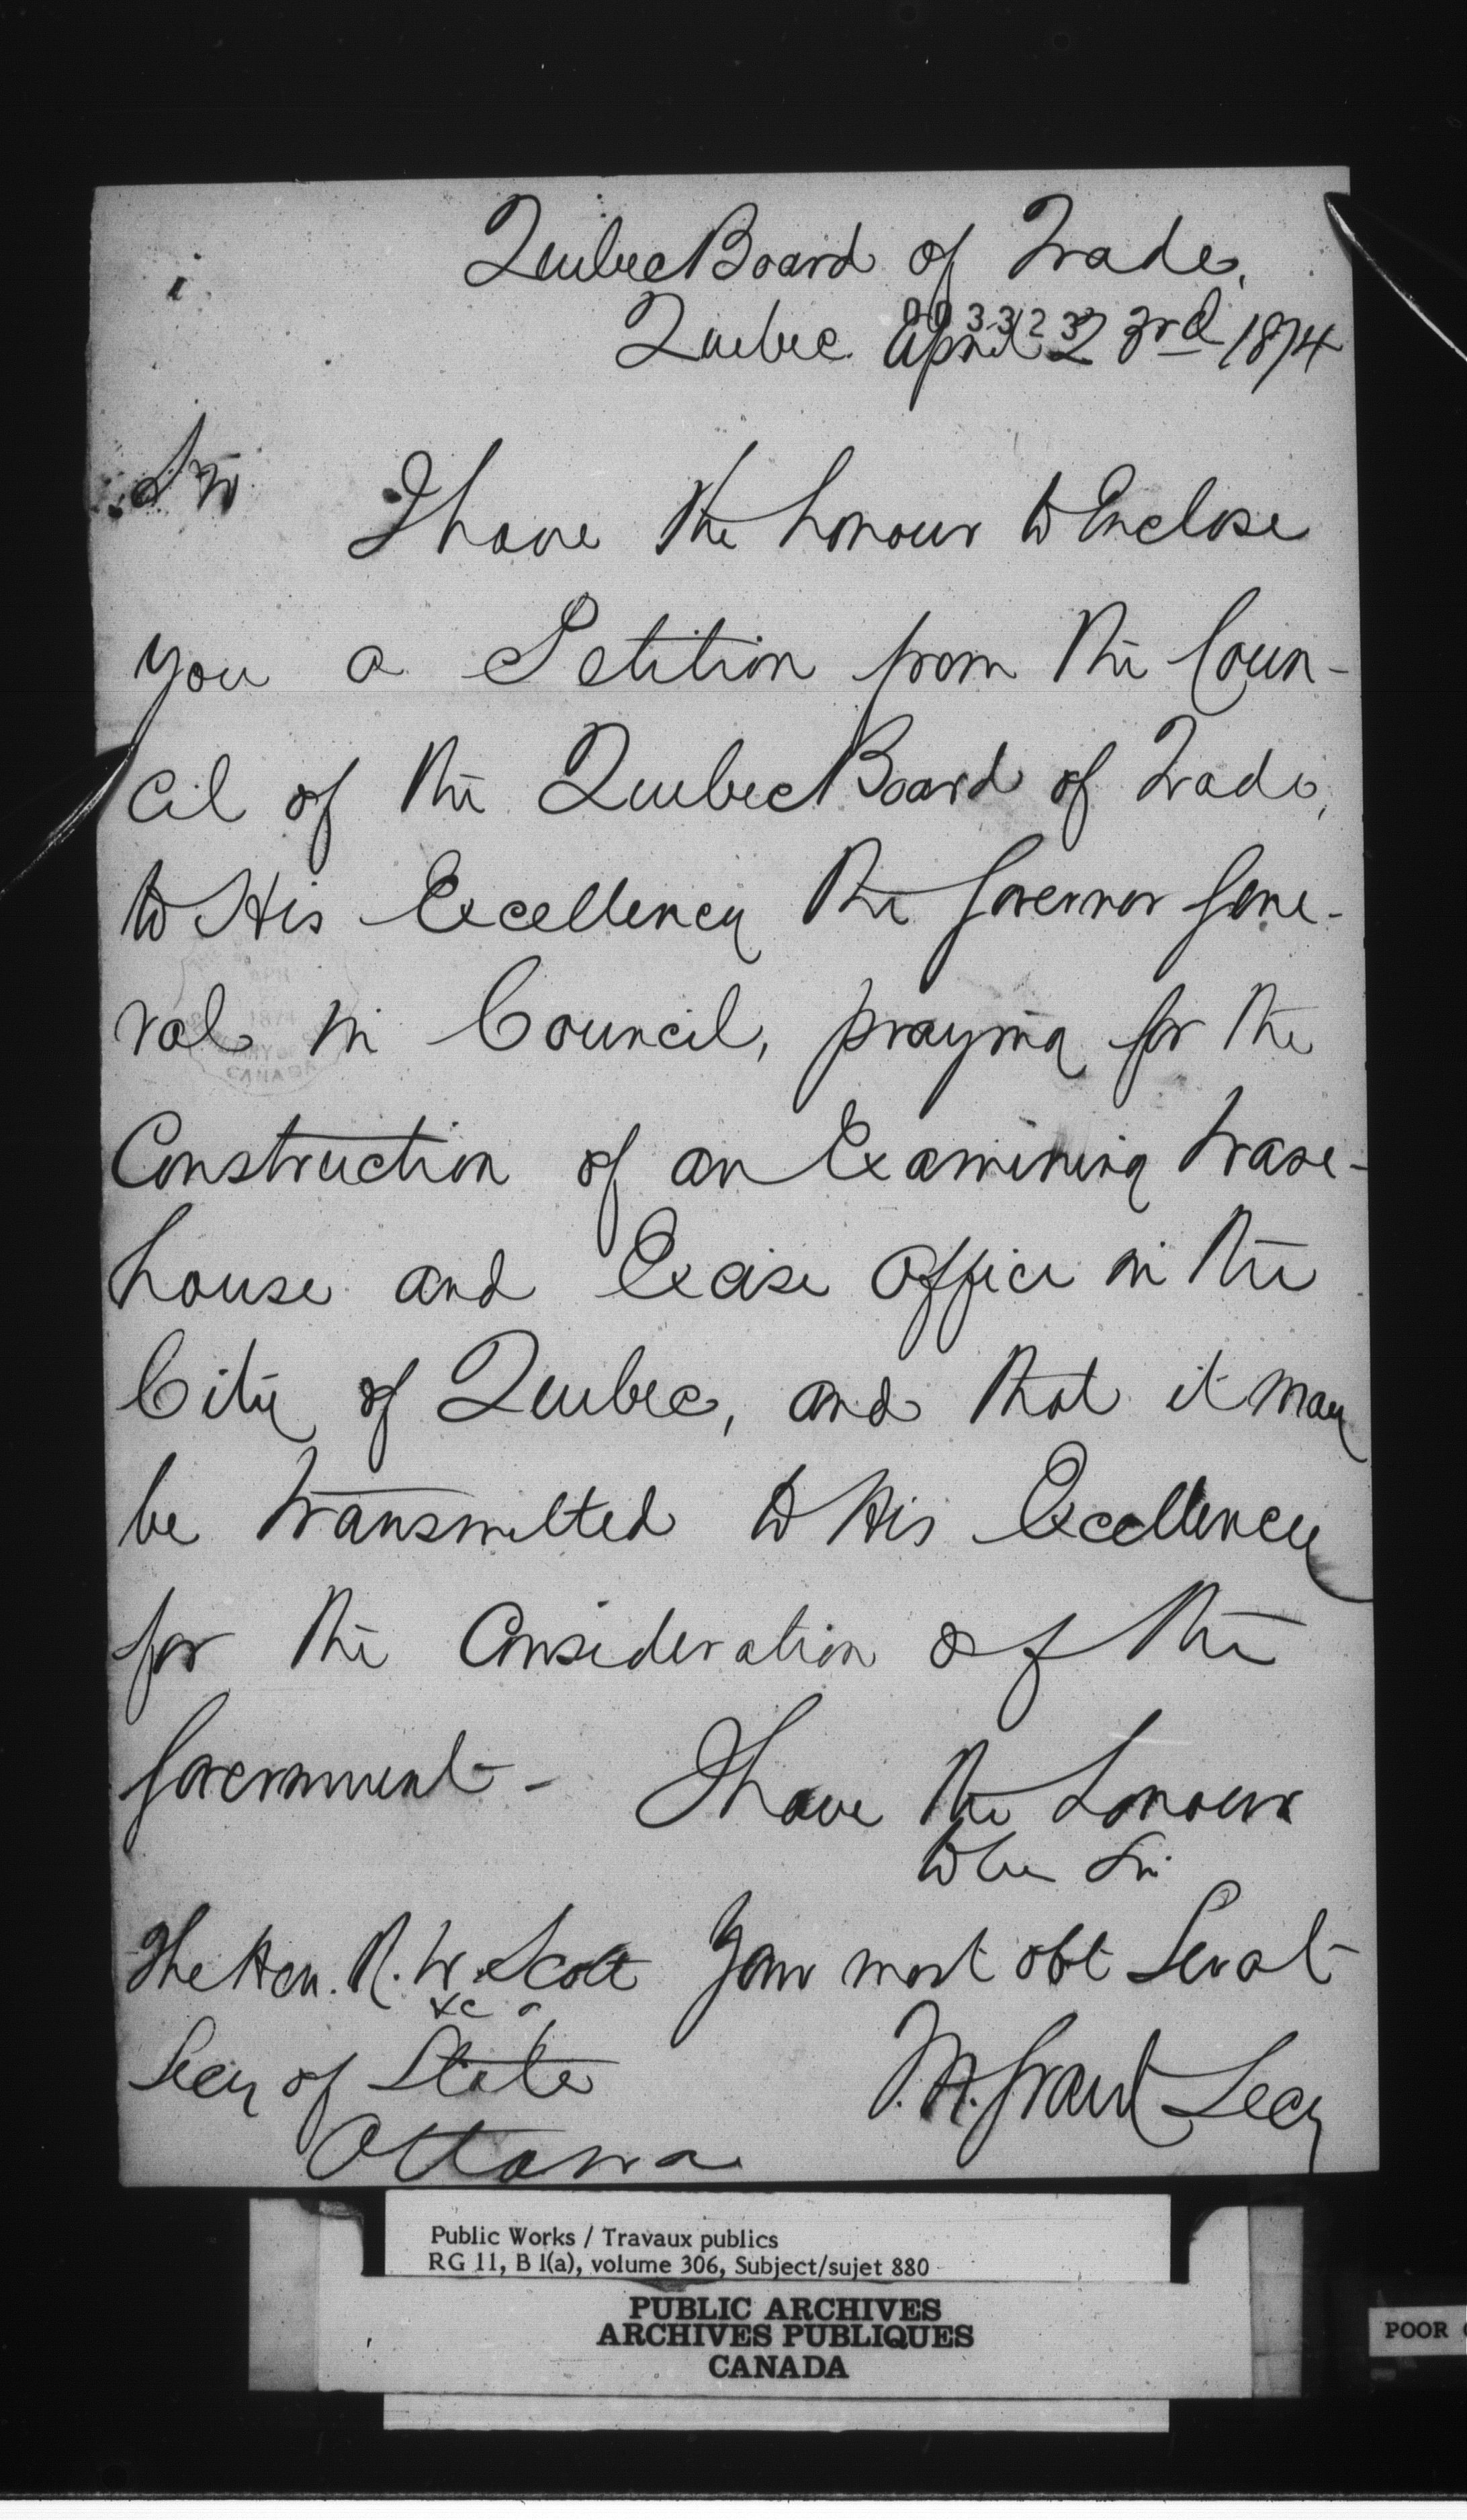 Quebec Board of Trade,
Quebec April 23rd 1874
Sir
I have the honour to Enclose
you a Petition from the Coun-
cil of the Quebec Board of Trade,
to His Excellency the Governor Gene-
ral in Council, praying for the
Construction of an Examining Ware-
house and Excise Office in the
City of Quebec, and that it may
be transmitted to His Excellency
for the Consideration of the
Government - I have the honour
to be Sir
The Hon. R. W. Scott Your most obt Servt
&c
Secy of State
Ottawa
Grant Secy
Public Works / Travaux publics
RG 11, B 1(a), volume 306, Subject/sujet 880
PUBLIC ARCHIVES
ARCHIVES PUBLIQUES
CANADA
POOR